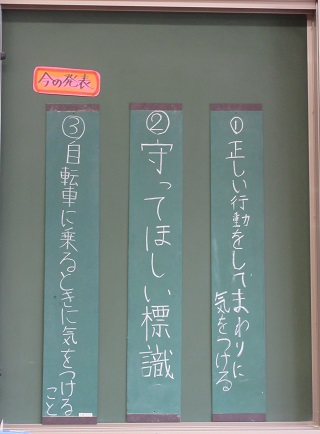 今の発表
①正しい行動をしてまわりに
気をつける
②守ってほしい標識
③自転車に乗るときに気をつける
こと